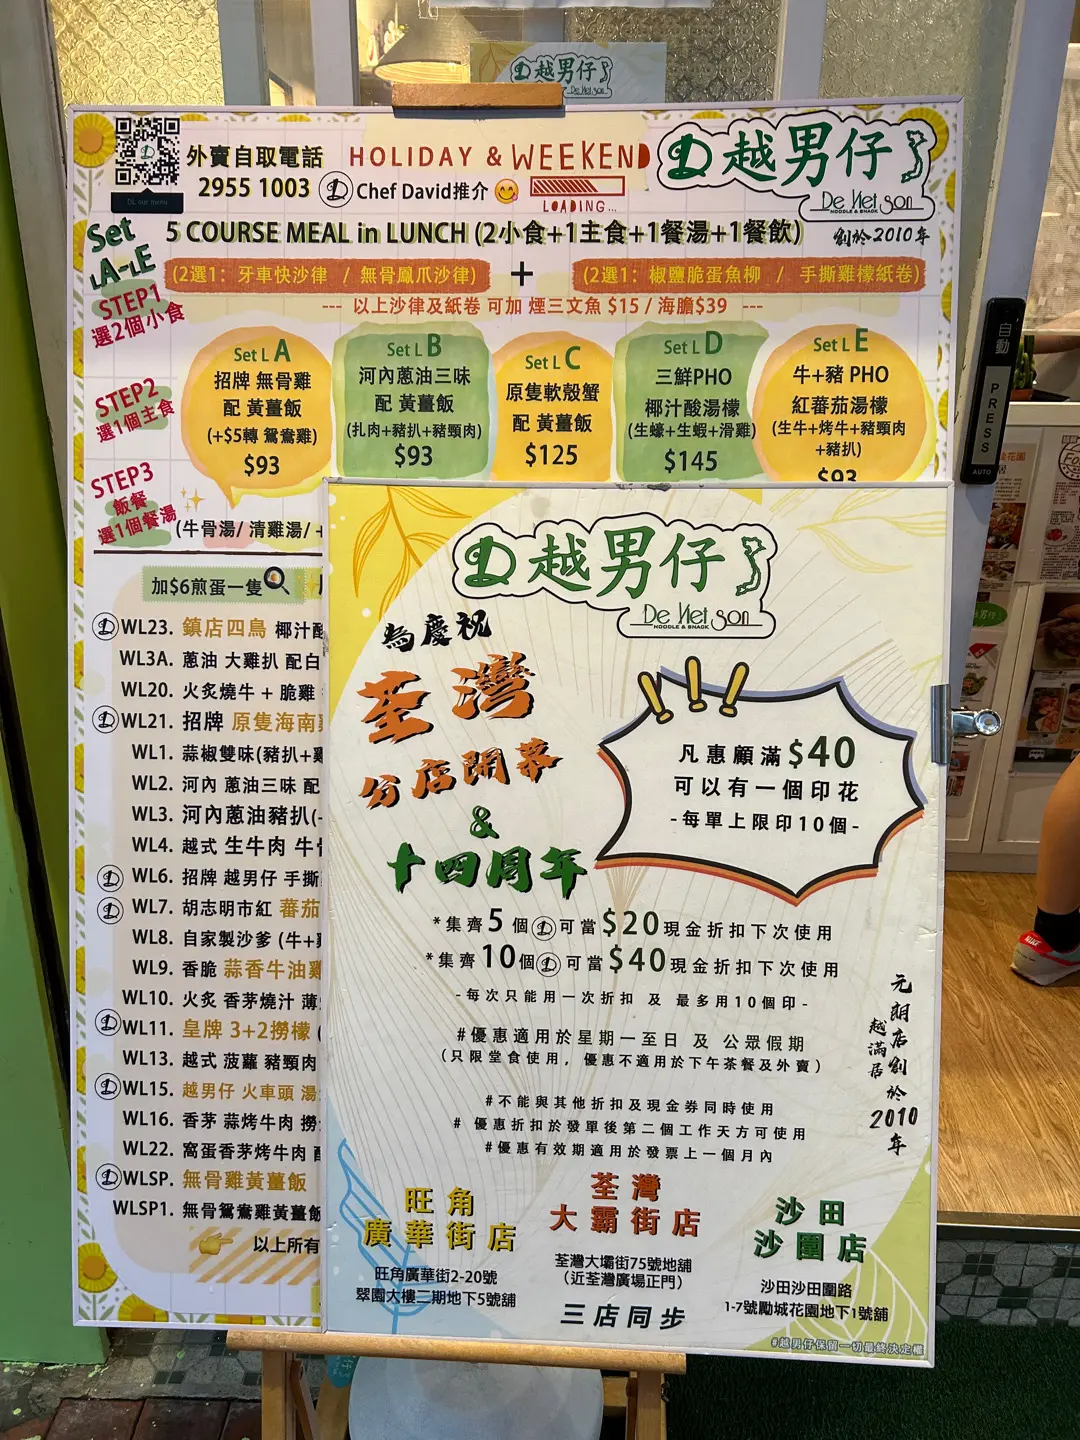 越男仔
De Viet Son
外賣自取電話
2955 1003
HOLIDAY & WEEKEND
LOADING...
Chef David推介
越男仔
De Viet Son
NOODLE & SNACK
創於2010年
Set
LA-LE
5 COURSE MEAL in LUNCH (2小食+1主食+1餐湯+1餐飲)
STEP1
選2個小食
(2選1: 牙車快沙律 / 無骨鳳爪沙律)
+
(2選1: 椒鹽脆蛋魚柳 / 手撕雞檬紙卷)
--- 以上沙律及紙卷 可加 煙三文魚 $15 / 海膽$39 ---
STEP2
選1個主食
Set L A
招牌 無骨雞
配 黃薑飯
(+$5轉 鴛鴦雞)
$93
Set L B
河內蔥油三味
配 黃薑飯
(扎肉+豬扒+豬頸肉)
$93
Set L C
原隻軟殼蟹
配 黃薑飯
$125
Set L D
三鮮PHO
椰汁酸湯檬
(生蠔+生蝦+滑雞)
$145
Set L E
牛+豬 PHO
紅蕃茄湯檬
(生牛+烤牛+豬頸肉
+豬扒)
$93
STEP3
飯餐
選1個餐湯
(牛骨湯/ 清雞湯/ +
加$6煎蛋一隻
WL23. 鎮店四鳥 椰汁酸
WL3A. 蔥油 大雞扒 配白
WL20. 火炙燒牛 + 脆雞
WL21. 招牌 原隻海南
WL1. 蒜椒雙味(豬扒+雞
WL2. 河內 蔥油三味 配
WL3. 河內蔥油豬扒(-
WL4. 越式 生牛肉 牛
WL6. 招牌 越男仔 手撕
WL7. 胡志明市紅 蕃茄
WL8. 自家製沙爹 (牛+
WL9. 香脆 蒜香牛油雞
WL10. 火炙 香茅燒汁 薄
WL11. 皇牌 3+2撈檬 (
WL13. 越式 菠蘿 豬頸肉
WL15. 越男仔 火車頭 湯
WL16. 香茅 蒜烤牛肉 撈
WL22. 窩蛋香茅烤牛肉
WLSP. 無骨雞黃薑飯
WLSP1. 無骨鴛鴦雞黃薑飯
以上所有
越男仔
De Viet Son
NOODLE & SNACK
為慶祝
荃灣
分店開幕
&
十四周年
凡惠顧滿$40
可以有一個印花
-每單上限印10個-
*集齊5個可當$20現金折扣下次使用
*集齊10個可當$40現金折扣下次使用
-每次只能用一次折扣 及 最多用10個印-
#優惠適用於星期一至日 及 公眾假期
(只限堂食使用, 優惠不適用於下午茶餐及外賣)
#不能與其他折扣及現金券同時使用
# 優惠折扣於發單後第二個工作天方可使用
#優惠有效期適用於發票上一個月內
元朗店創於2010年
越滿居
旺角
廣華街店
旺角廣華街2-20號
翠園大樓二期地下5號舖
荃灣
大霸街店
荃灣大壩街75號地舖
(近荃灣廣場正門)
三店同步
沙田
沙圍店
沙田沙田圍路
1-7號勵城花園地下1號舖
#越男仔保留一切最終決定權
自動
PRESS
AUTO